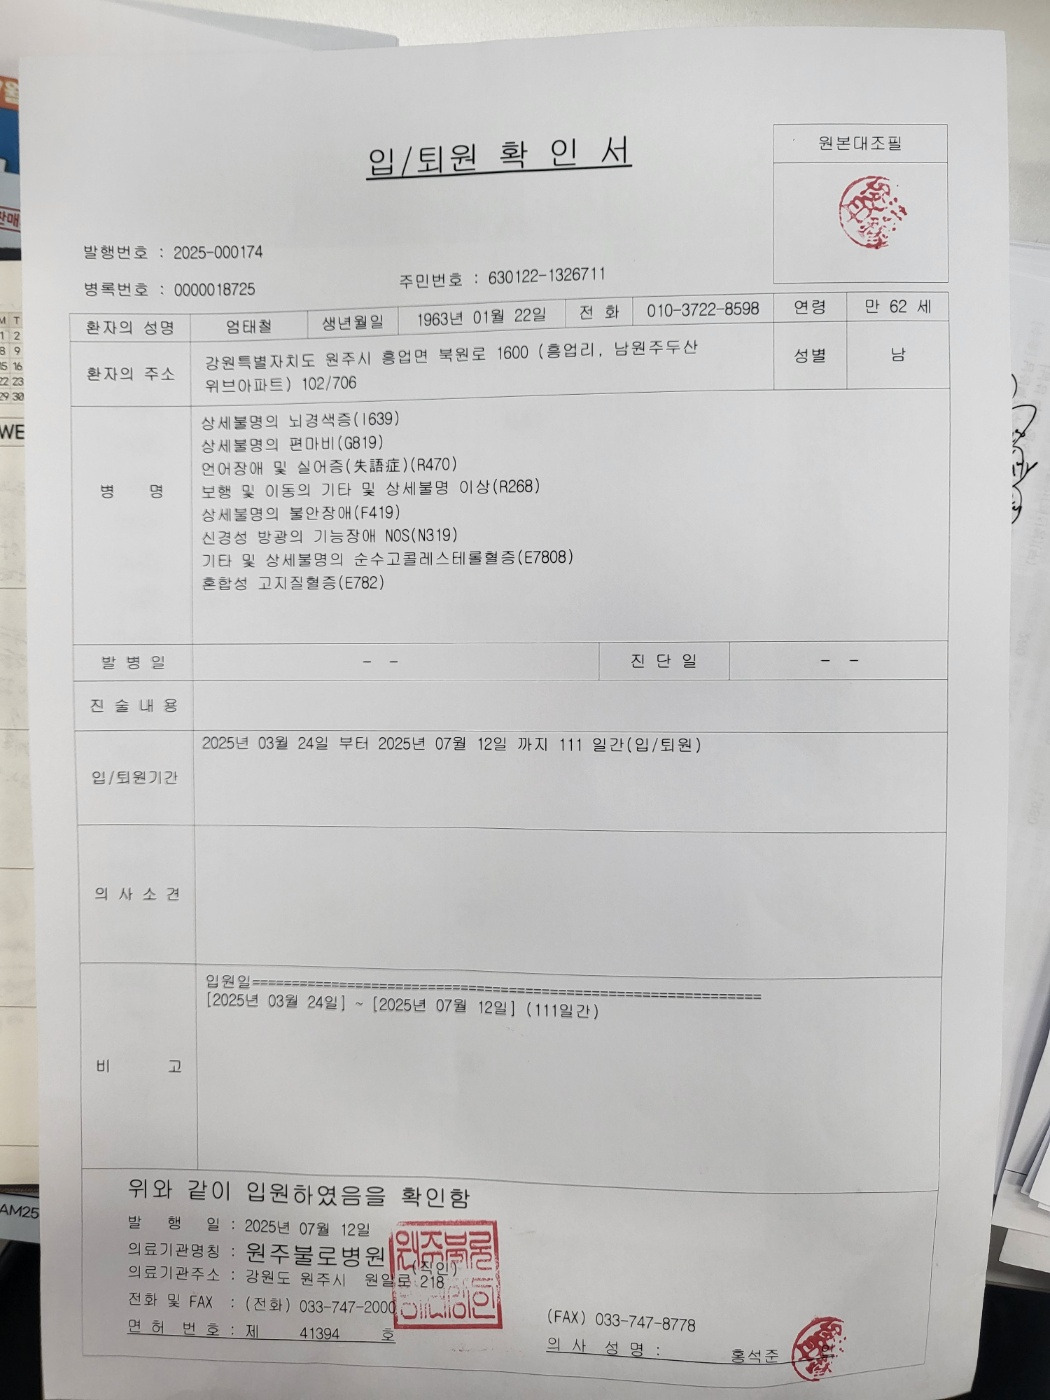 입/퇴원 확 인 서
원본대조필
발행번호 : 2025-000174
병록번호 : 0000018725
주민번호 : 630122-1326711
환자의 성명 엄태철 생년월일 1963년 01월 22일 전 화 010-3722-8598 연령 만 62 세
환자의 주소 강원특별자치도 원주시 흥업면 북원로 1600 (흥업리, 남원주두산
위브아파트) 102/706
성별 남
병 명
상세불명의 뇌경색증(I639)
상세불명의 편마비(G819)
언어장애 및 실어증(失語症)(R470)
보행 및 이동의 기타 및 상세불명 이상(R268)
상세불명의 불안장애(F419)
신경성 방광의 기능장애 NOS(N319)
기타 및 상세불명의 순수고콜레스테롤혈증(E7808)
혼합성 고지질혈증(E782)
발 병 일 - - 진 단 일 - -
진 술 내 용
입/퇴원기간 2025년 03월 24일 부터 2025년 07월 12일 까지 111 일간(입/퇴원)
의 사 소 견
비 고
입원일================================================================
[2025년 03월 24일] ~ [2025년 07월 12일] (111일간)
위와 같이 입원하였음을 확인함
발 행 일 : 2025년 07월 12일
의료기관명칭 : 원주불로병원 (직인)
의료기관주소 : 강원도 원주시 원일로 218
전화 및 FAX : (전화) 033-747-2000
(FAX) 033-747-8778
면 허 번 호 : 제 41394 호
의 사 성 명 : 홍석준
AM25